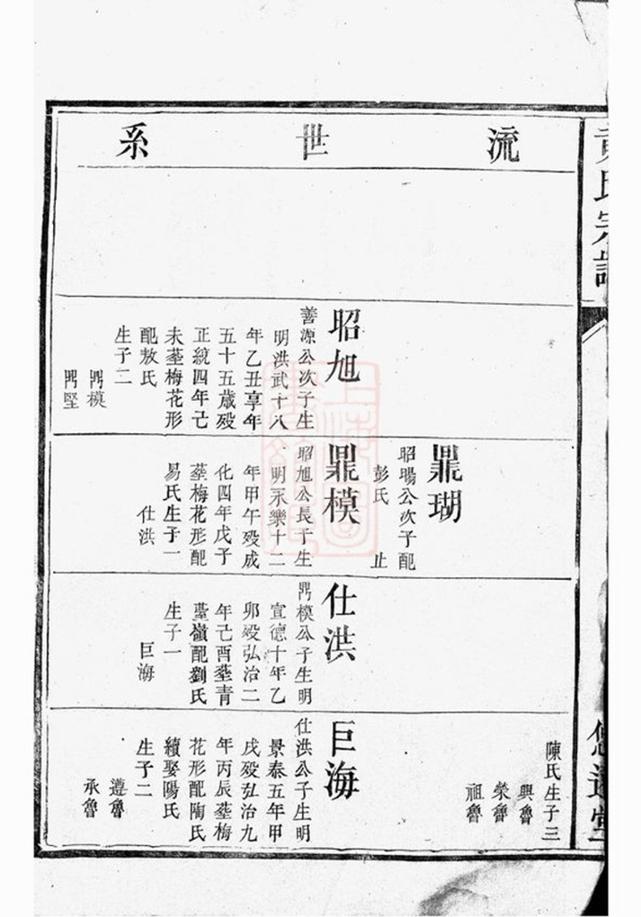 黃氏宗譜
悠遠堂
流世系
昭旭
善源公次子生
明洪武十八
年乙丑享年
五十五歲歿
正統四年己
未塟梅花形
配敖氏
生子二
鼎模
鼎堅
鼎瑚
昭暘公次子配
彭氏 止
鼎模
昭旭公長子生
明永樂十二
年甲午歿成
化四年戊子
塟梅花形配
易氏生子一
仕洪
仕洪
鼎模公子生明
宣德十年乙
卯歿弘治二
年己酉塟青
臺嶺配劉氏
生子一
巨海
陳氏生子三
興魯
榮魯
祖魯
巨海
仕洪公子生明
景泰五年甲
戌歿弘治九
年丙辰塟梅
花形配陶氏
續娶陽氏
生子二
遵魯
承魯